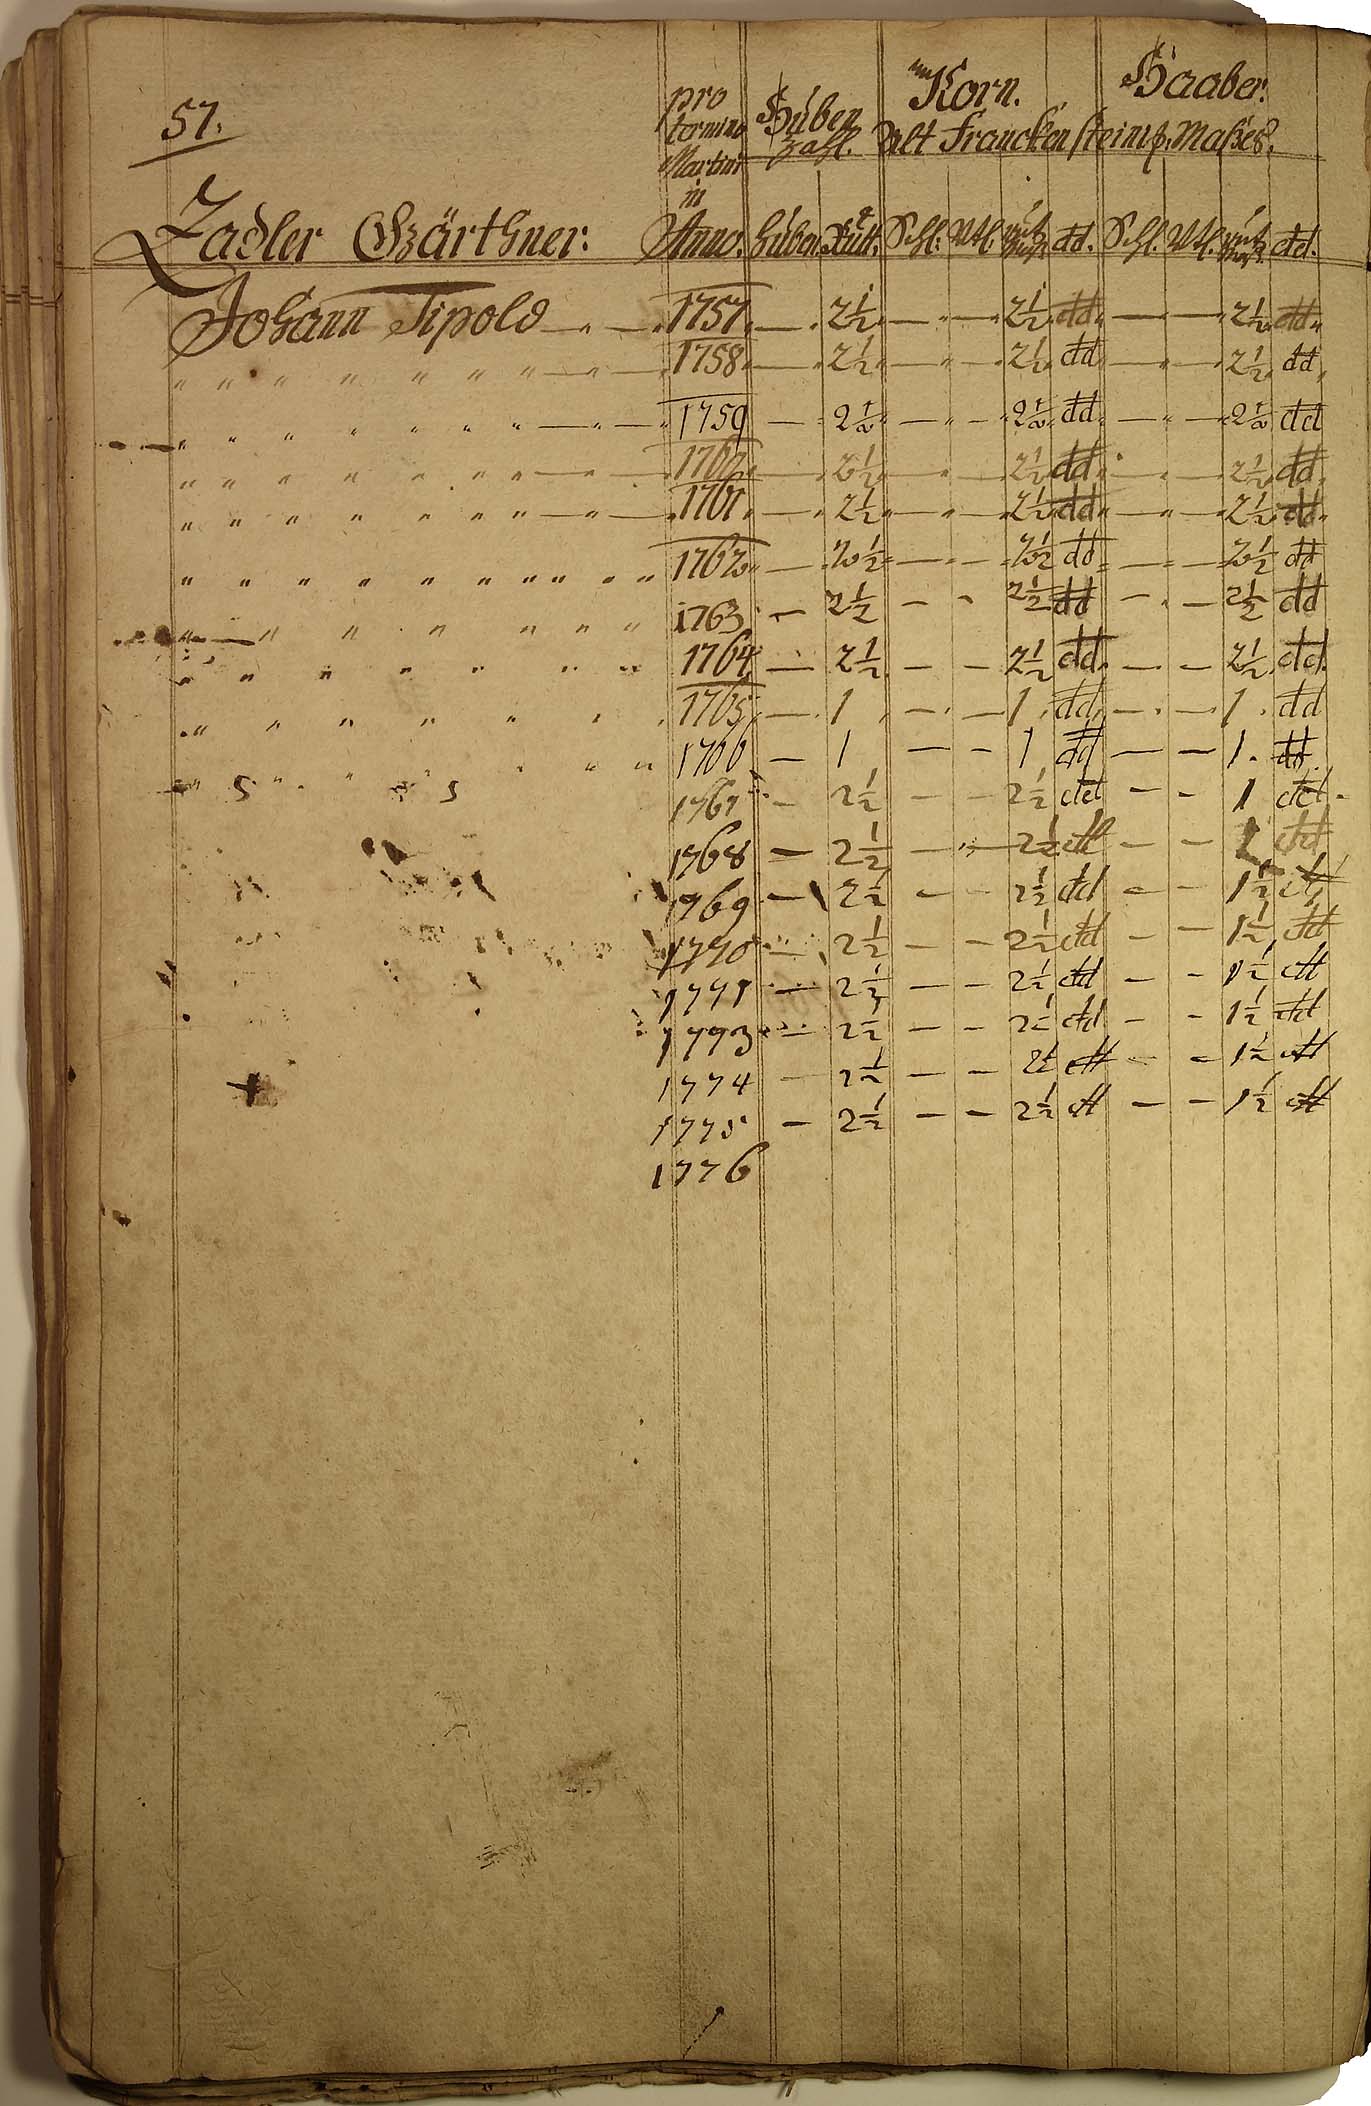 57.
pro termino Martini in Anno.
Huben Zahl.
Korn.
Haaber:
Alt Franckensteins. Maßes.
Zadler Gärthner:
Huben. Rutt. Schl: Vtl. dd. Schl. Vtl. dd.
Johann Tipold — " — 1757. — 2½ — " — 2½ dd — — 2½ dd
" " " " " " " — " — 1758 — 2½ — " — 2½ dd — " — 2½ dd
" " " " " " " — " — 1759 — 2½ — " — 2½ dd — " — 2½ dd
" " " " " " " — " — 1760 — 2½ — " — 2½ dd — " — 2½ dd
" " " " " " " — " — 1761 — 2½ — " — 2½ dd — " — 2½ dd
" " " " " " " " " " " 1762 — 2½ — " — 2½ dd — " — 2½ dd
" — " " " " " " 1763 — 2½ — - 2½ dd — - — 2½ dd
" " " " " " " 1764 — 2½ — — 2½ dd — - — 2½ dd
" " " " " " 1765 — 1 — - — 1 dd — - — 1. dd
" " " " " " 1766 — 1 — — 1 dd — — 1. dd
1767 — 2½ — — 2½ dd — — 1 dd
1768 — 2½ — " — 2½ dd — — 1 dd
1769 — 2½ — — 2½ dd — — 1½ dd
1770 — 2½ — — 2½ dd — — 1½ dd
1771 — 2½ — — 2½ dd — — 1½ dd
1773 — 2½ — — 2½ dd — — 1½ dd
1774 — 2½ — — 2½ dd — — 1½ dd
1775 — 2½ — — 2½ dd — — 1½ dd
1776